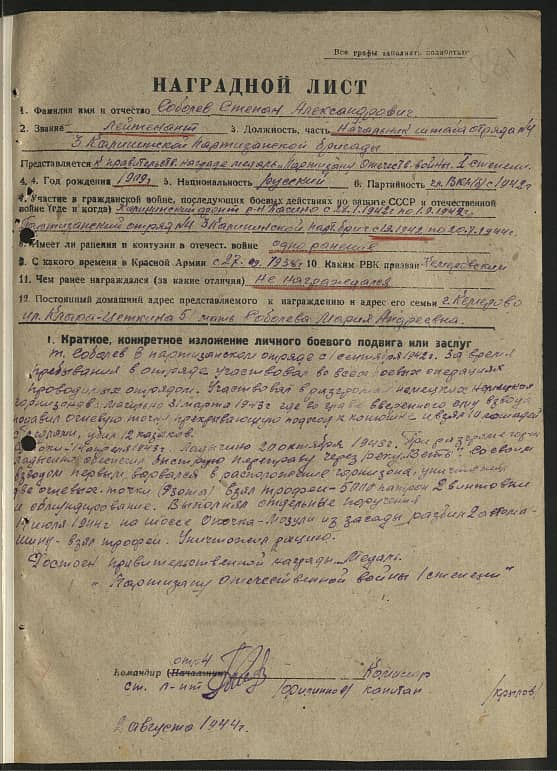 Все графы заполнять полностью
НАГРАДНОЙ ЛИСТ
1. Фамилия имя и отчество Соболев Степан Александрович
2. Звание Лейтенант 3. Должность, часть Начальник штаба отряда №4
3 Калининской Партизанской бригады
Представляется к правительств. награде медаль „Партизану Отечеств. войны" I степени.
4. Год рождения 1909г 5. Национальность русский 6. Партийность ВКП(б) с 1942г
Участие в гражданской войне, последующих боевых действиях по защите СССР и отечественной
войне (где и когда) Калининский фронт с 28.1.1942г по 1.9.1942г.
Партизанский отряд №4 3 Калининской парт. бриг. с 1942 по 20.7.1944г.
Имеет ли ранения и контузии в отечест. войне одно ранение
9. С какого времени в Красной Армии с 27. 1938г 10. Каким РВК призван Кемеровским
11. Чем ранее награждался (за какие отличия) Не награждался
12. Постоянный домашний адрес представляемого к награждению и адрес его семьи г. Кемерово
ул. Клара-Цеткина 5 мать Соболева Мария Андреевна.
I. Краткое, конкретное изложение личного боевого подвига или заслуг
т. Соболев в партизанском отряде с 1 сентября 1942г. За время
пребывания в отряде участвовал во всех боевых операциях
проводимых отрядом. Участвовал в разгроме немецких
гарнизонов 31 марта 1943г где во главе вверенного ему взвода
подавил огневую точку прикрывающую подход к конюшне и взял 10 лошадей
с седлами, убил 12 казаков.
1943г. Ладыгино 20 октября 1943г. При разгроме
обеспечил быструю переправу через реку. Со своим
взводом первым ворвался в расположение гарнизона, уничтожил
две огневых точки (дзоты) взял трофеи - 5000 патрон 2 винтовки
и обмундирование. Выполнял отдельные поручения
июля 1944г на шоссе Опочка-Мозули из засады разбил 2 автома-
шины - взял трофеи. Уничтожил рацию.
Достоен правительственной награды Медаль
„Партизану Отечественной войны I степени"
Командир (Начальник) отр 4 Комиссар
ст. л-нт капитан /Крылов/
2 августа 1944г.